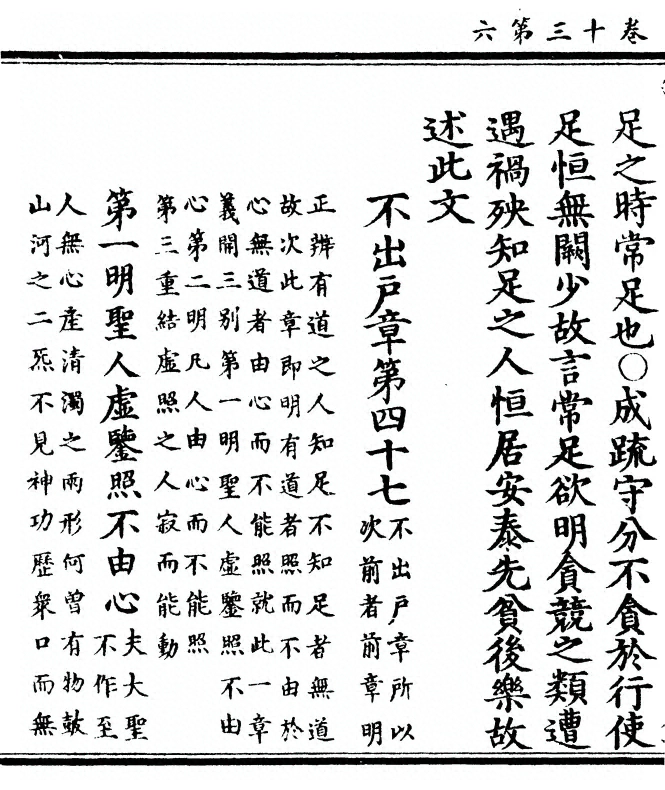 卷十三第六
足之時常足也○成䟽守分不貪於行使
足恒無闕少故言常足欲明貪競之類遭
遇禍殃知足之人恒居安泰先貧後樂故
述此文
不出戶章第四十七
不出戶章所以
次前者前章明
正辨有道之人知足不知足者無道
故次此章即明有道者照而不由於
心無道者由心而不能照就此一章
義開三別第一明聖人虛鑒照不由
心第二明凡人由心而不能照
第三重結虛照之人寂而能動
第一明聖人虛鑒照不由心
夫大聖
不作至
人無心產清濁之兩形何曾有物鼓
山河之二炁不見神功歷衆口而無